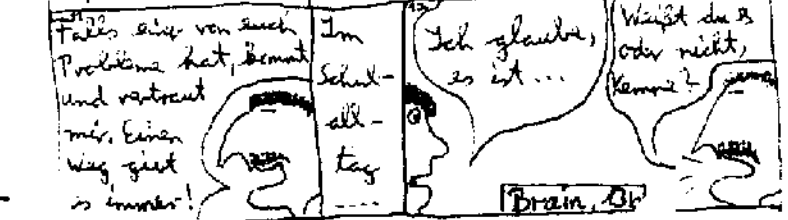 Falls einer von euch
Probleme hat, kommt
und vertraut
mir. Einen
Weg gibt
es immer!
Im
Schul-
all-
tag
----
Ich glaube,
es ist...
Weißt du es
oder nicht,
Memme?
Brain,